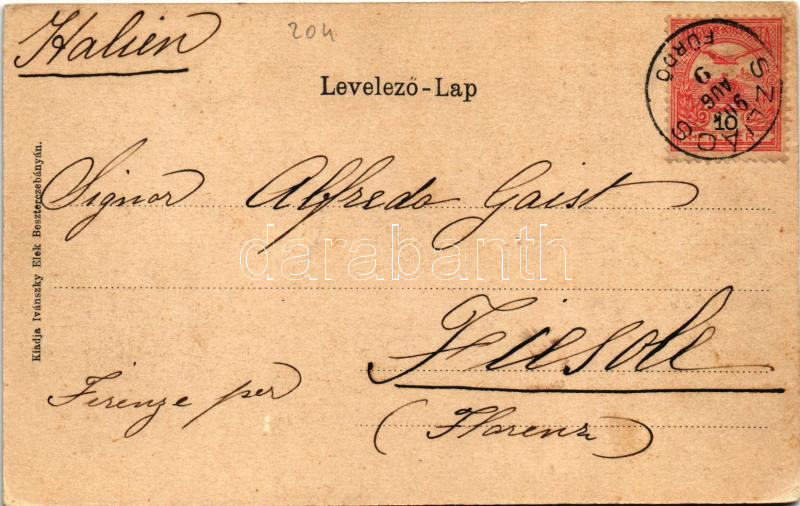 Italien
204
Levelező-Lap
SZLIACS
FÜRDŐ
AUG
9
10
Signor Alfredo Gaist
darabanth
Fiesole
Firenze per
(Florenz)
Kiadja Ivánszky Elek Beszterczebányán.